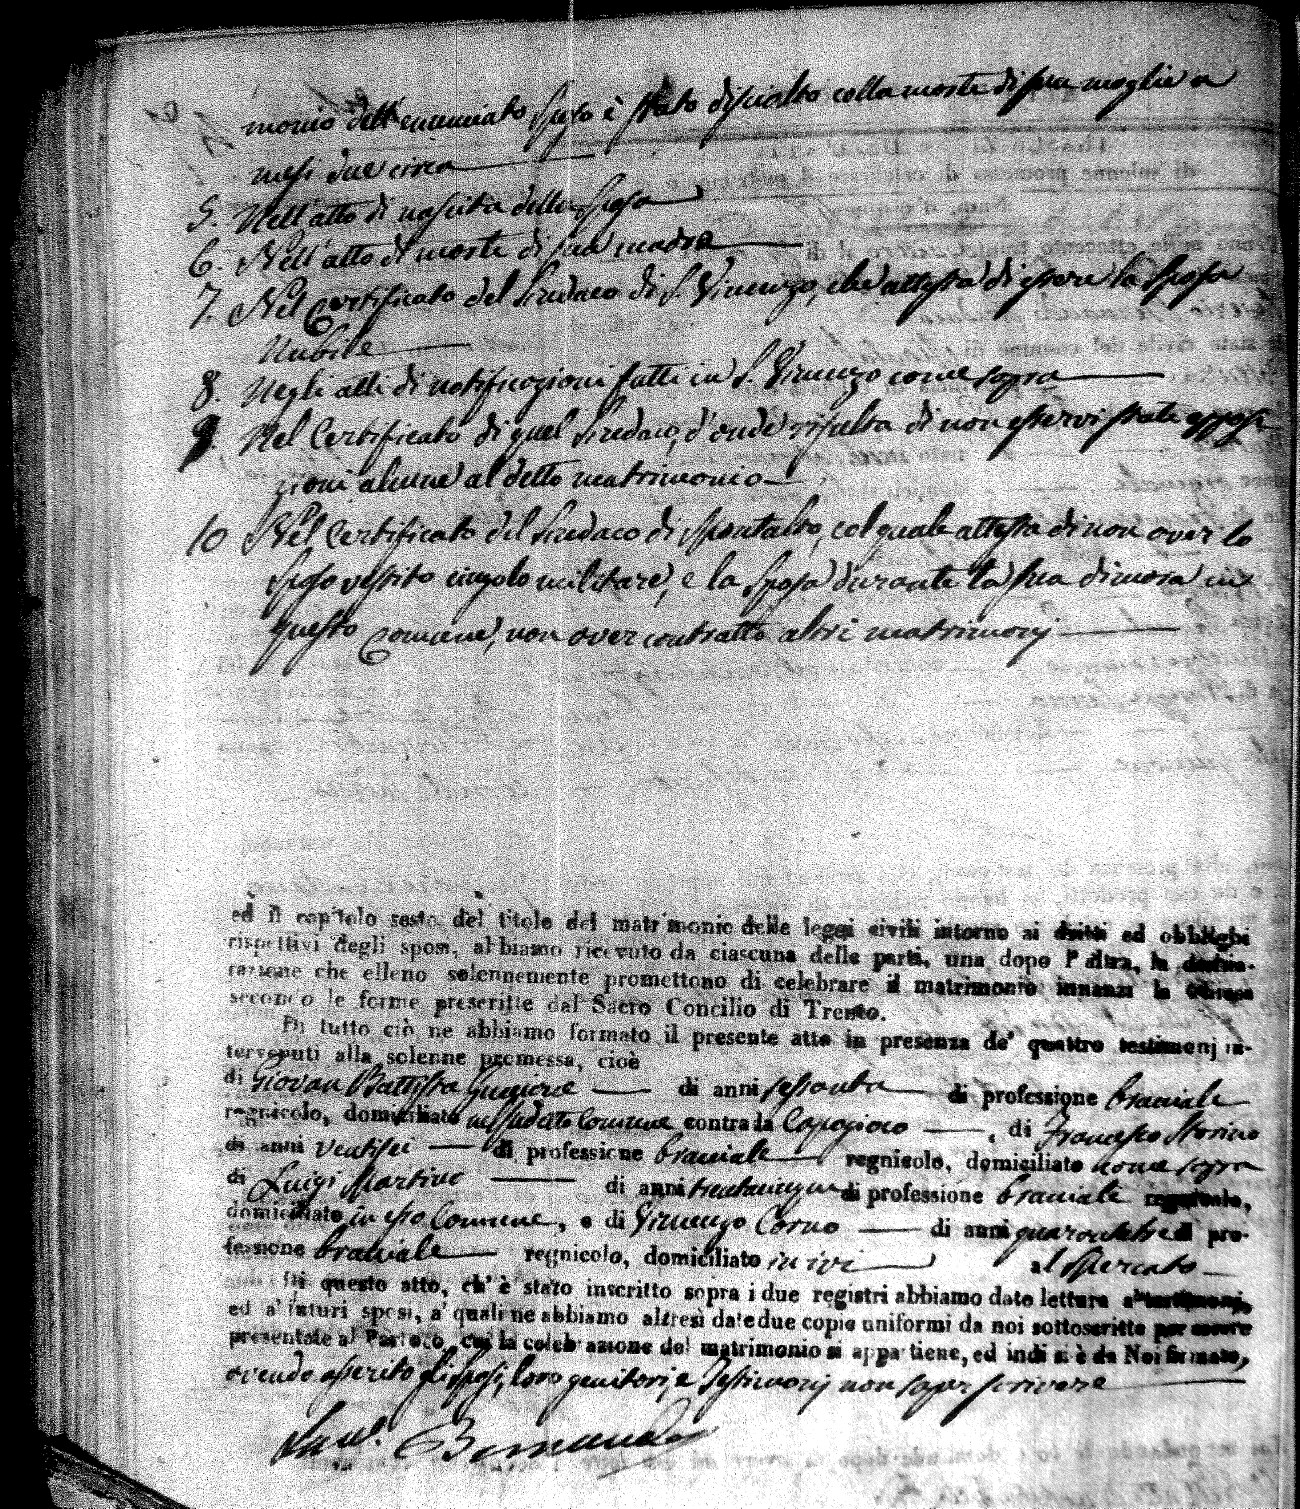 monio dell'enunciato sposo è stato disciolto colla morte di sua moglie a
mesi due circa
5. Nell'atto di nascita della sposa
6. Nell'atto di morte di sua madre
7. Nel Certificato del Sindaco di S. Vincenzo, che attesta di essere la sposa
Nubile
8. Negli atti di notificazioni fatti in S. Vincenzo come sopra
9. Nel Certificato di quel Sindaco, d'onde risulta di non esservi state opposi
zioni alcune al detto matrimonio
10 Nel Certificato del Sindaco di Montalto, col quale attesta di non aver lo
sposo vestito cingolo militare, e la sposa durante la sua dimora in
questo Comune, non aver contratto altri matrimonj
ed il capitolo sesto del titolo del matrimonio delle leggi civili intorno ai dritti ed obblighi
rispettivi degli sposi, abbiamo ricevuto da ciascuna delle parti, una dopo l'altra, la dichia-
razione che elleno solennemente promettono di celebrare il matrimonio innanzi la Chiesa
secondo le forme prescritte dal Sacro Concilio di Trento.
Di tutto ciò ne abbiamo formato il presente atto in presenza de' quattro testimonj in-
tervenuti alla solenne promessa, cioè
di Giovan Battista di anni sessanta di professione bracciale
regnicolo, domiciliato nessudetto Comune contrada Capogioco, di Francesco Storino
di anni ventisei di professione bracciale regnicolo, domiciliato come sopra
di Luigi Martino di anni trentacinque di professione bracciale regnicolo,
domiciliato in esso Comune, e di Vincenzo Corno di anni quarantatre di pro-
fessione bracciale regnicolo, domiciliato in ivi al Mercato
Di questo atto, ch' è stato inscritto sopra i due registri abbiamo dato lettura a' testimonj,
ed a' futuri sposi, a' quali ne abbiamo altresì date due copie uniformi da noi sottoscritte per essere
presentate al Parroco, cui la celebrazione del matrimonio si appartiene, ed indi si è da Noi firmato,
avendo asserito gli sposi, loro genitori, e Testimonj non saper scrivere